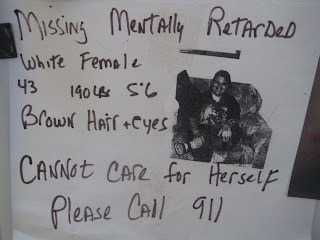 Missing Mentally Retarded
White Female
43 190lbs 5'6
Brown Hair + eyes
CANNOT CARE for HerselF
Please CAll 911